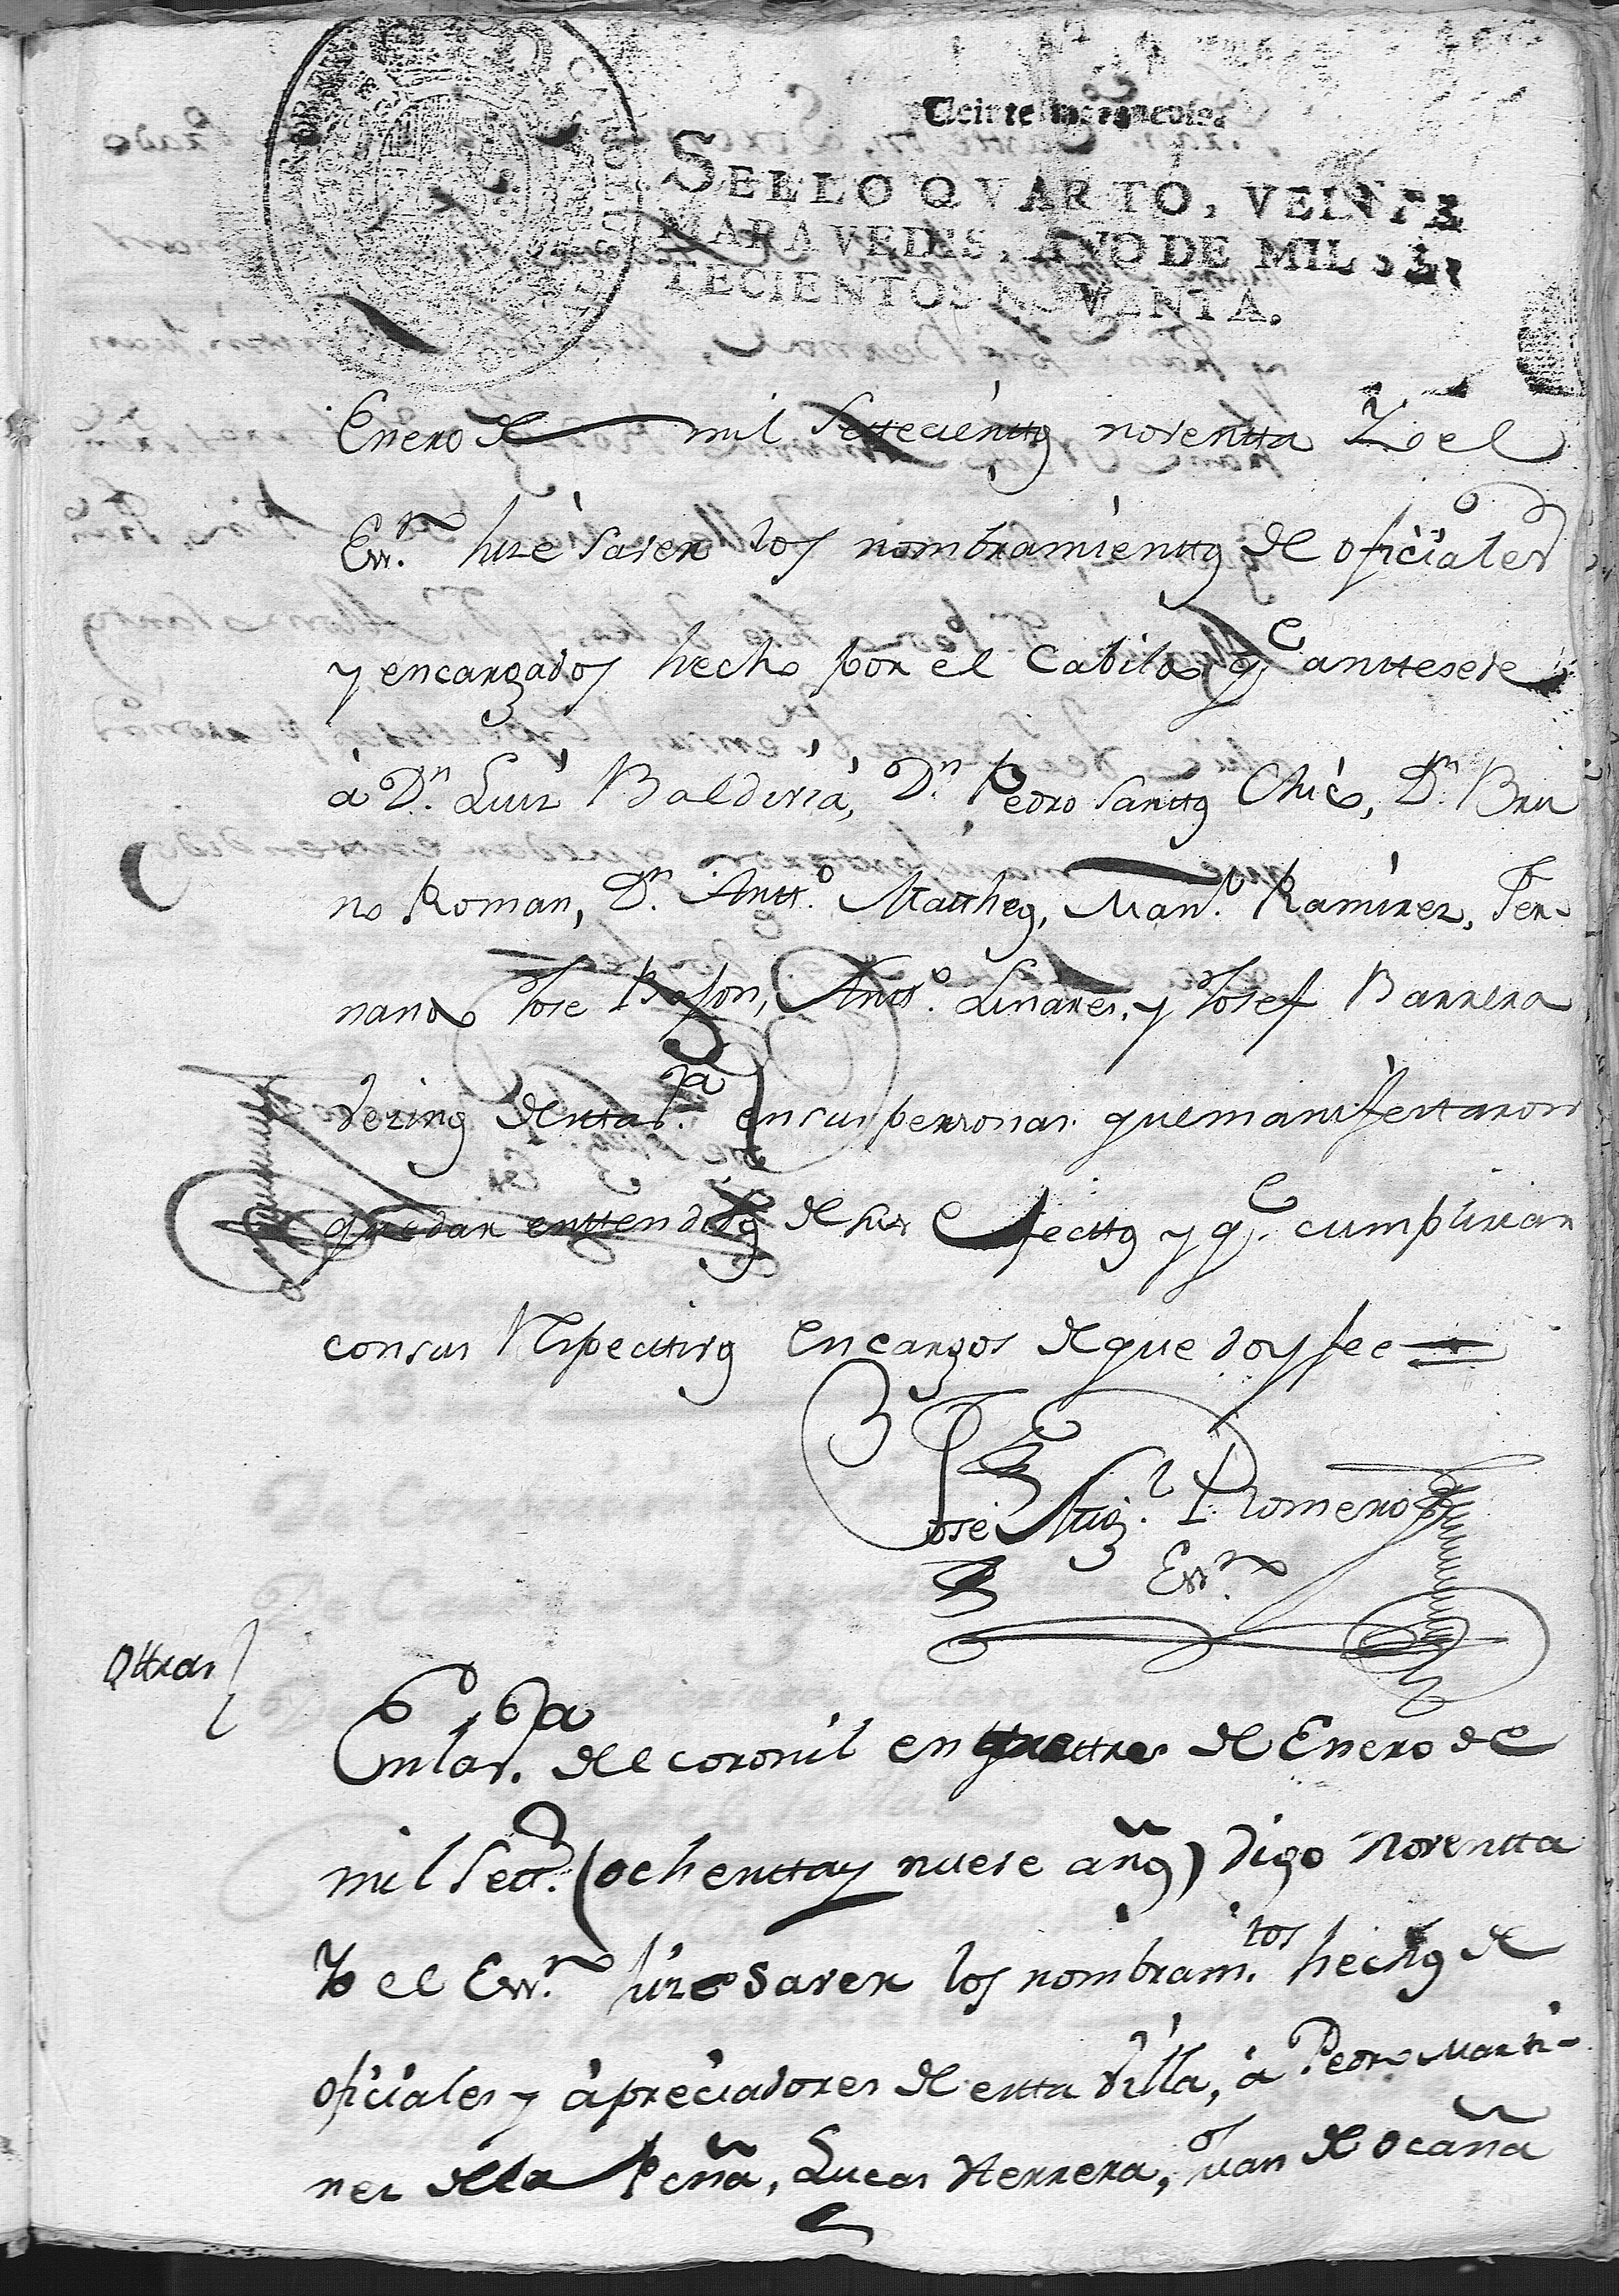 Veinte maravedis.
SELLO QVARTO, VEINTE
MARAVEDIS, AÑO DE MIL SE
TECIENTOS NOVENTA.
Enero de mil Settecientos noventta Yo el
Essno. hize saver los nombramienttos de oficiales
y encargados hecho por el Cabildo qe. anttesede
à Dn. Luiz Baldivia, Dn. Pedro Santtos Chico, Dn. Bru
no Roman, Dn. Antto. Mattheos, Manl. Ramirez, Fer-
nando Jose Bason, Antto. Linares, y Josef Barrera
vezinos de estta Va. en sus personas que manifestaron
quedar enttendidos de sus efecttos y qe. cumplirian
con sus respecttivos encargos de que doy fee =
José Migl. Romero
Essno.
Ottras
En la Va. de el coronil en tres de Enero de
mil Settos. (ochentta y nueve años) digo noventta
Yo el Essno. hize saver los nombramtos. hechos de
oficiales y àpreciadores de estta villa, à Pedro Marti-
nez de la Peña, Lucas Herrera, Juan de Ocaña